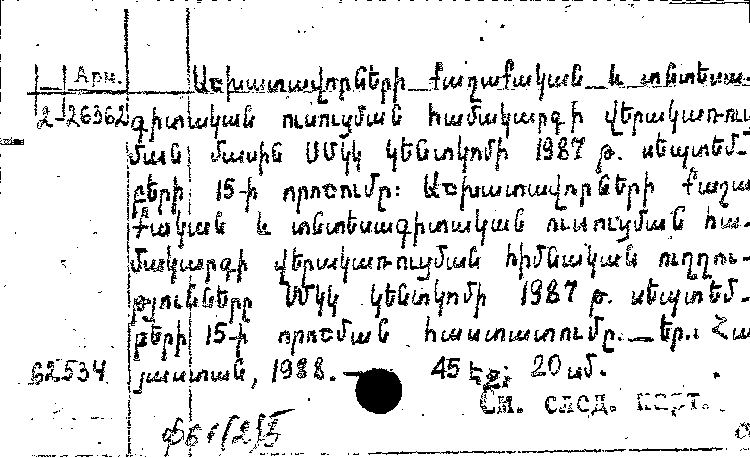 Арм. Աշխատավորների քաղաքական և տնտեսա-
2-26362 գիտական ուսուցման համակարգի վերակառուց
ման մասին ՍՄԿԿ Կենտկոմի 1987 թ. սեպտեմ-
բերի 15-ի որոշումը: Աշխատավորների քաղա
քական և տնտեսագիտական ուսուցման հա-
մակարգի վերակառուցման հիմնական ուղղու-
թյունները ՍՄԿԿ Կենտկոմի 1987 թ. սեպտեմ-
բերի 15-ի որոշման հաստատումը. — Եր.: Հա
62534 յաստան, 1988. — 45 էջ; 20 սմ.
См. след. карт.